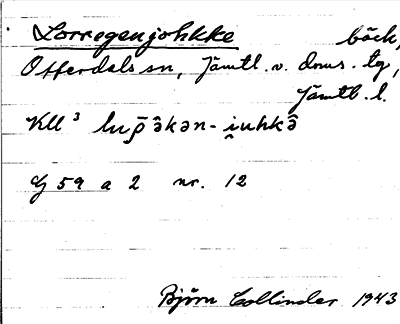 Lorregenjohkke bäck,
Offerdals sn, Jämtl. v. doms. tg,
Jämtl. l.
KU³ lup̄âkən-i̯uhkâ
G 59 a 2 nr. 12
Björn Collinder 1943